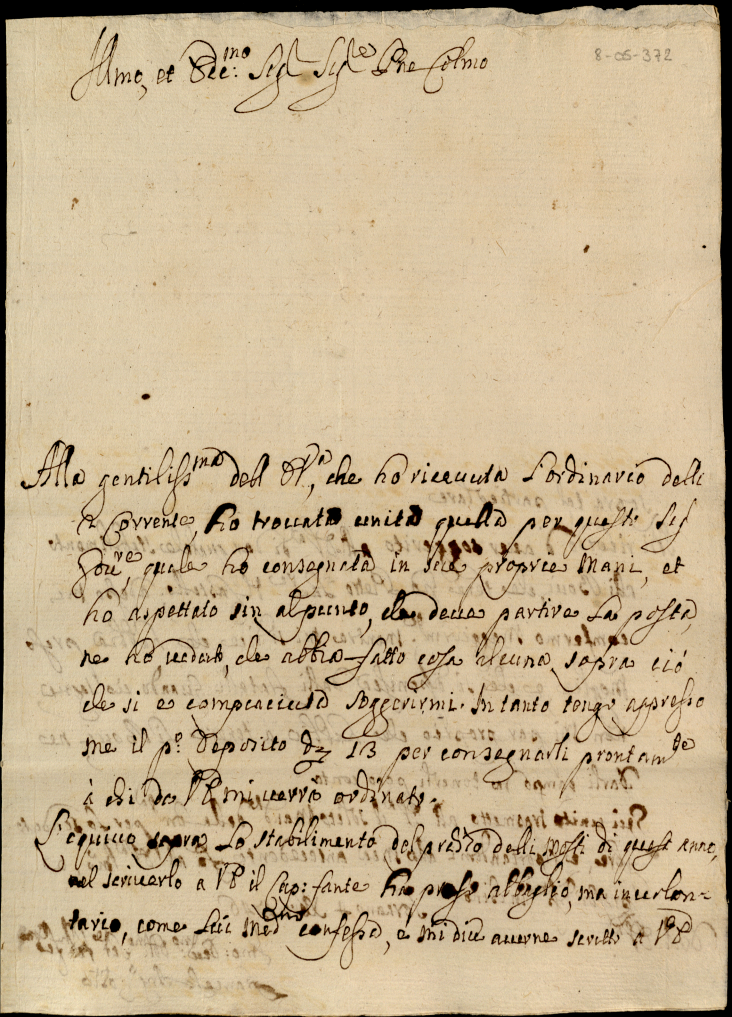 Illmo, et Ecc:mo Sigr Sigre Pne Colmo
8-05-372
Alla gentilissma dell V.Ea, che ho riceuuta l'ordinario delli
2 Corrente, ho trouata unita quella per questi Sig
quale ho consegnata in sue proprie mani, et
ho aspettato sin al punto, che deue partire la posta,
ne ho ueduto, che abbia fatto cosa alcuna sopra ciò
che si è compiaciuta soggerirmi. In tanto tengo appresso
me il po deposito di 13 per consegnarli prontamte
à chi da V.E. mi uerrà ordinato.
L'equiuo sopra lo stabilimento del predto delli mosti di quest anno,
nel scriuerlo a V.E. il Cap: fante ha preso abbaglio, ma inuolon-
tario, come lui medmo confessa, e mi dice auerne scritto a V.E.